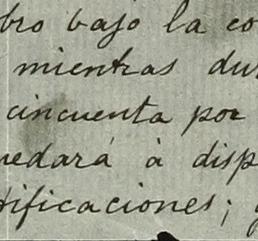 bro bajo la co
mientras dur
cincuenta por
uedará à disp
tificaciones; y